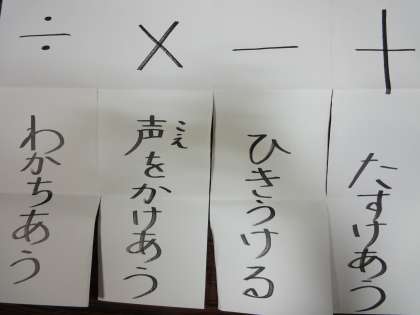 +
たすけあう
−
ひきうける
×
声をかけあう
こえ
÷
わかちあう